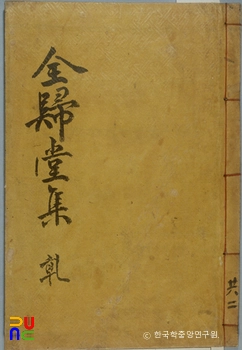 全歸堂集 乹
共二
© 한국학중앙연구원